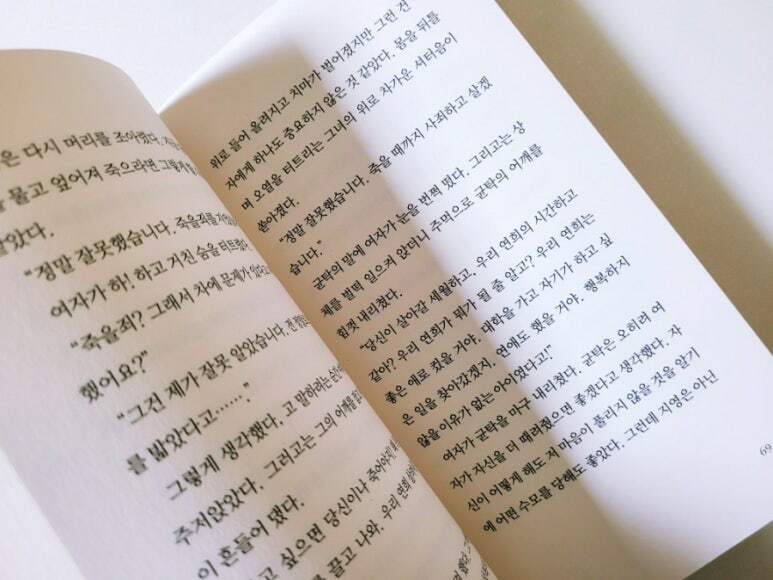 은 다시 머리를 조아렸다.
물고 엎어져 죽으라면 그렇게
았다.
"정말 잘못했습니다. 죽을죄를
여자가 하! 하고 거친 숨을 터트렸다
"죽을죄? 그래서 차에 문제가 있다고
했어요?"
"그건 제가 잘못 알았습니다. 전
를 밟았다고……."
그렇게 생각했다. 고 말하려는 순간
주저앉았다. 그러고는 그의 어깨를
이 흔들어 댔다.
고 싶으면 당신이나 죽어야지
를 끌고 나와. 우리 연희
위로 들어 올려지고 치마가 벌어졌지만 그런 건
자에게 하나도 중요하지 않은 것 같았다. 몸을 뒤틀
며 오열을 터트리는 그녀의 위로 차가운 셔터음이
쏟아졌다.
"정말 잘못했습니다. 죽을 때까지 사죄하고 살겠
습니다."
균탁의 말에 여자가 눈을 번쩍 떴다. 그리고는 상
체를 벌떡 일으켜 앉더니 주먹으로 균탁의 어깨를
힘껏 내리쳤다.
"당신이 살아갈 세월하고, 우리 연희의 시간하고
같아? 우리 연희가 뭐가 될 줄 알고? 우리 연희는
좋은 애로 컸을 거야. 대학을 가고 자기가 하고 싶
은 일을 찾아갔겠지. 연애도 했을 거야. 행복하지
않을 이유가 없는 아이였다고!"
여자가 균탁을 마구 내리쳤다. 균탁은 오히려 여
자가 자신을 더 때려줬으면 좋겠다고 생각했다. 자
신이 어떻게 해도 저 마음이 풀리지 않을 것을 알기
에 어떤 수모를 당해도 좋았다. 그런데 지영은 아닌
69